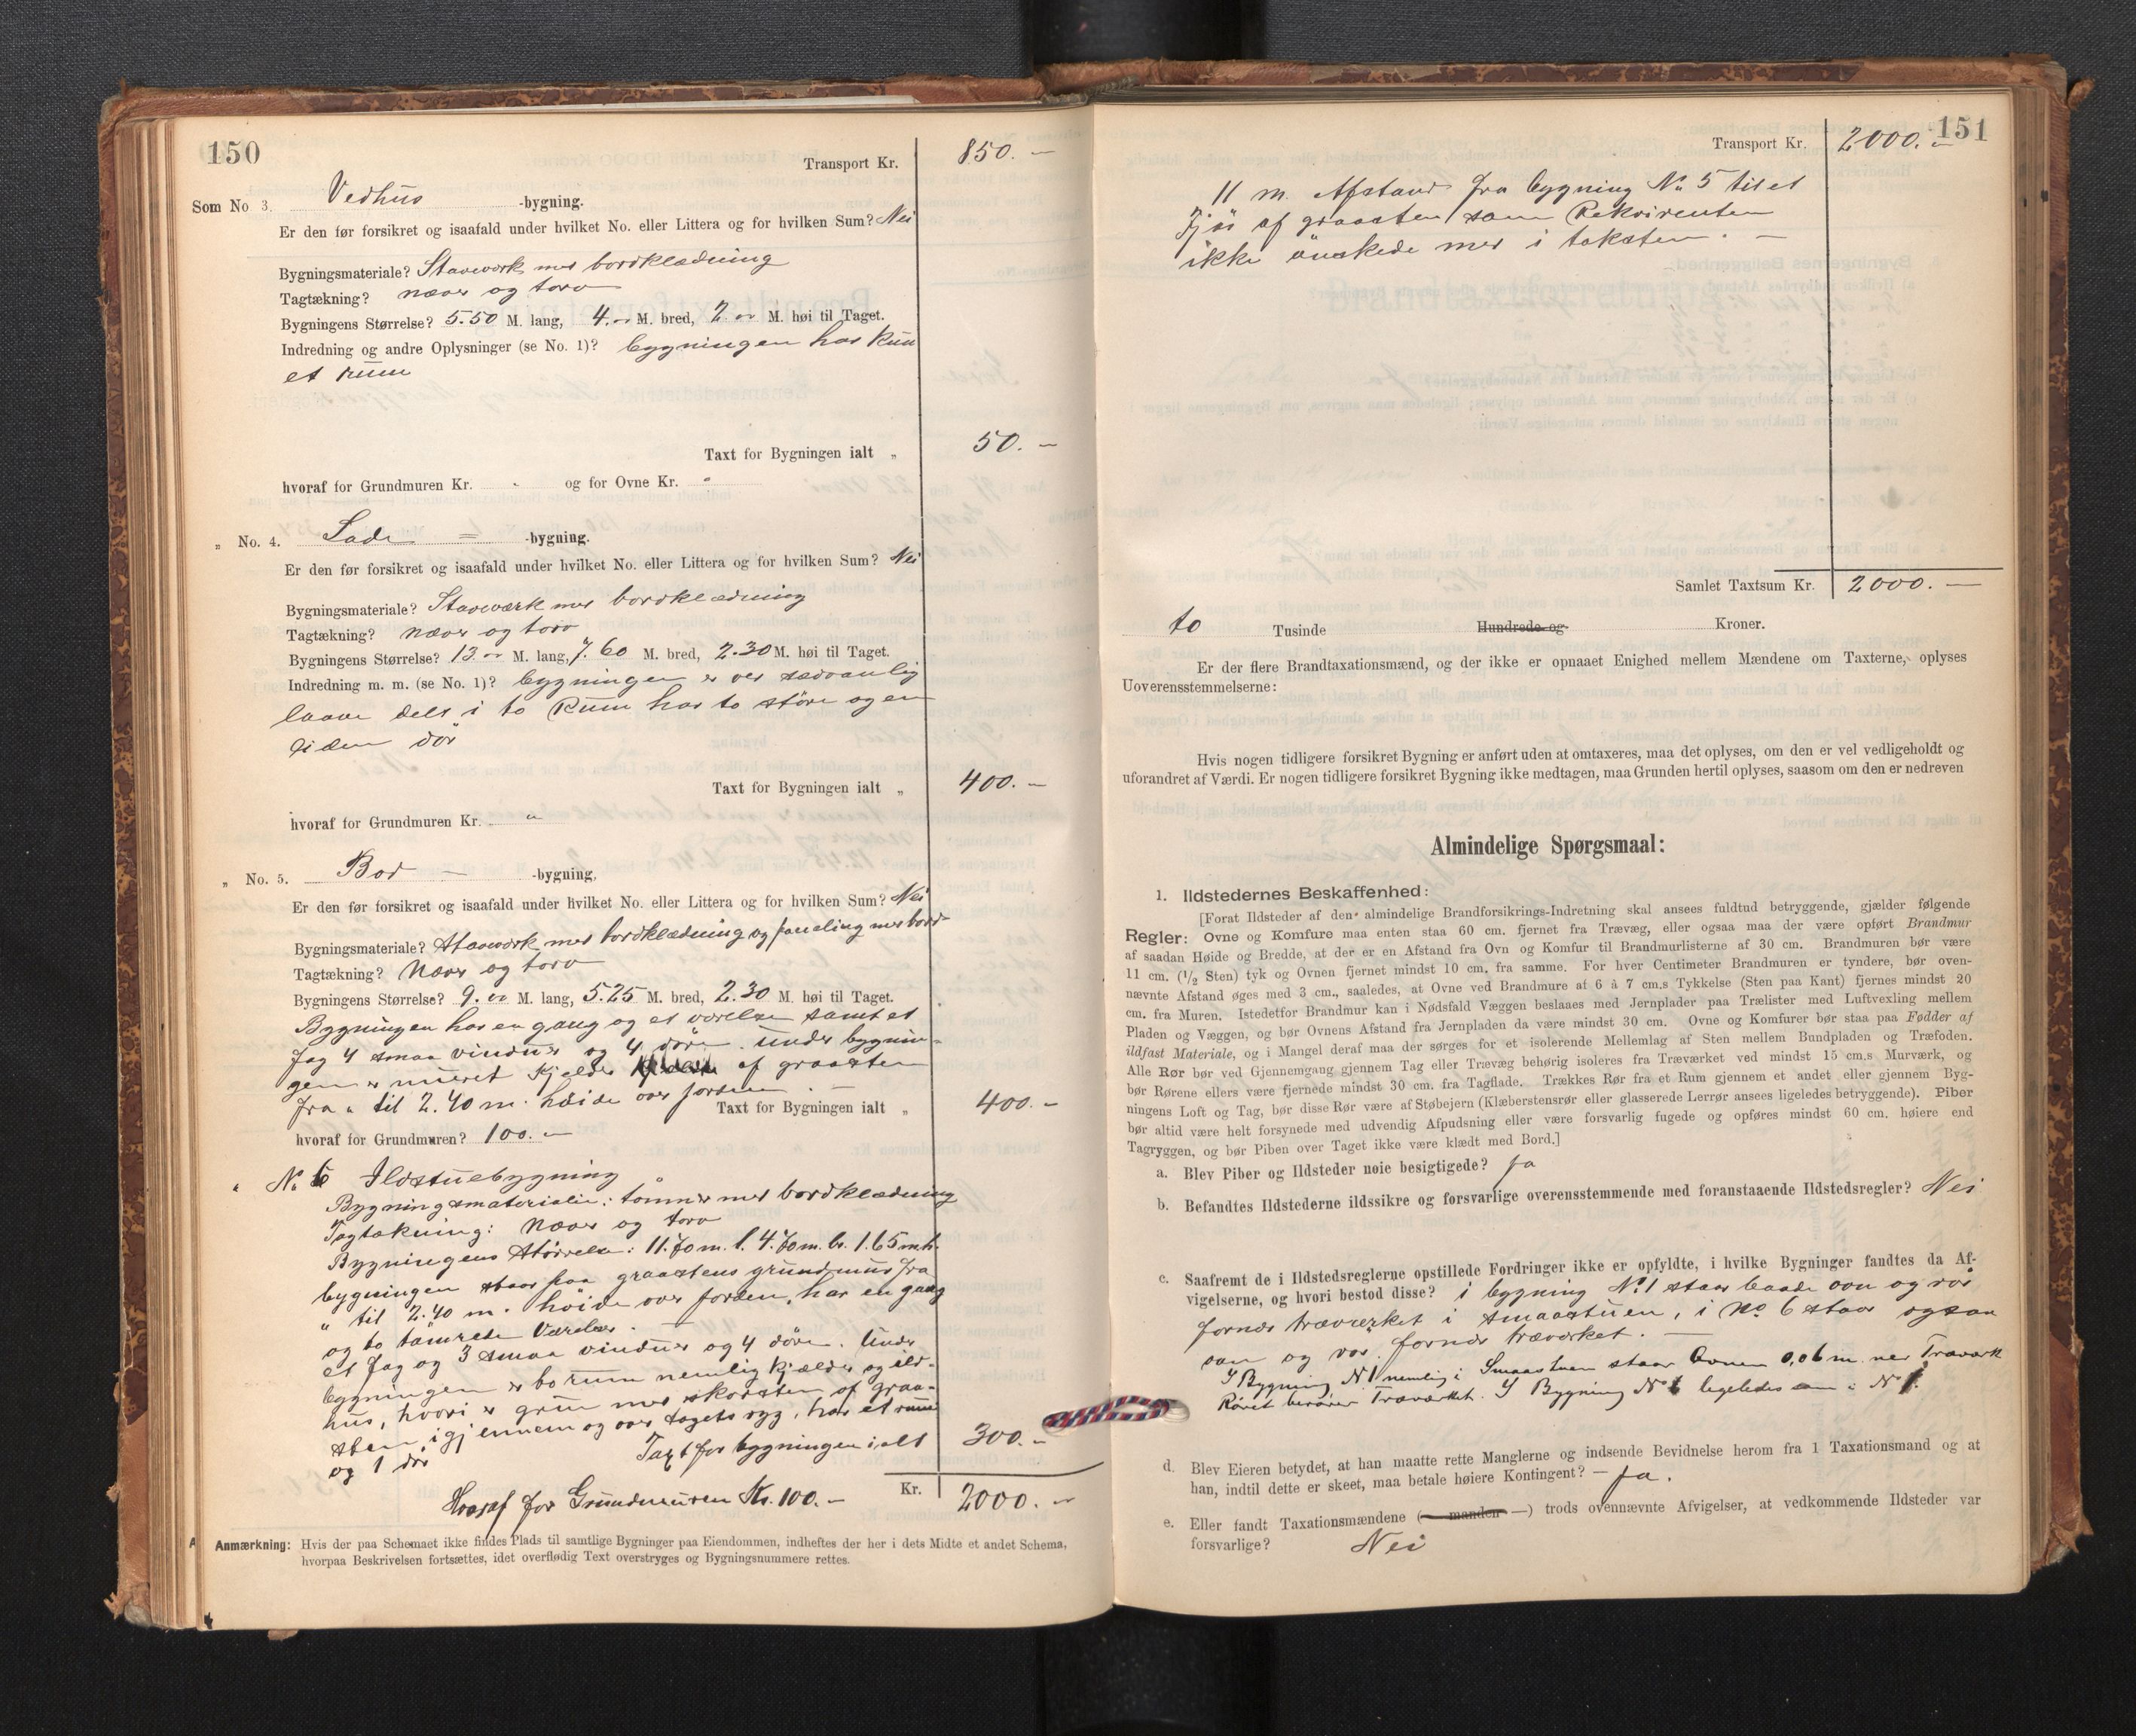 150
Transport Kr. 850. –
Som No 3. Vedhus -bygning.
Er den før forsikret og isaafald under hvilket No. eller Littera og for hvilken Sum? Nei
Bygningsmateriale? Stavverk med bordklædning
Tagtækning? næver og torv
Bygningens Størrelse? 5.50 M. lang, 4. " M. bred, 2 " M. høi til Taget.
Indredning og andre Oplysninger (se No. 1)? bygningen har kun
et rum
Taxt for Bygningen ialt „ 50. –
hvoraf for Grundmuren Kr. " og for Ovne Kr. "
„ No. 4. Lade – -bygning.
Er den før forsikret og isaafald under hvilket No. eller Littera og for hvilken Sum? Nei
Bygningsmateriale? Stavværk med bordklædning
Tagtækning? næver og torv
Bygningens Størrelse? 13 " M. lang, 7.60 M. bred, 2.30 M. høi til Taget.
Indredning m. m. (se No. 1)? bygningen er ved sædvanlig
laave delt i to Rum har to störe og en
liden dör
Taxt for Bygningen ialt „ 400. –
hvoraf for Grundmuren Kr. "
„ No. 5. Bod – -bygning,
Er den før forsikret og isaafald under hvilket No. eller Littera og for hvilken Sum? Nei
Bygningsmateriale? Stavverk med bordklædning og paneling med bord
Tagtækning? Næver og torv
Bygningens Størrelse? 9. " M. lang, 5.25 M. bred, 2.30 M. høi til Taget.
Bygningen har en gang og et værelse samt et
fag 4 smaa vinduer og 4 döre. Under bygnin-
gen er muret Kjelder af graasten
fra " til 2.40 m. höide over jorden. –
Taxt for Bygningen ialt „ 400. –
hvoraf for Grundmuren? 100. –
" No 6 Ildstuebygning
Bygningsmateriale: tømmer med bordklædning
Tagtækning: Næver og torv
Bygningens Störrelse: 11.70 m. l. 4.70 m. br. 1.65 m h.
bygningen staar paa graastens grundmur fra
" til 2.40 m. höide over jorden, har en gang
og to tömrede Værelser. –
et fag og 3 smaa vinduer og 4 döre. Under
bygningen er to rum nemlig kjælder og ild-
hus, hvori er grue med skorsten af graa-
sten igjennem og over tagets ryg, har et rum
og 1 dör
Taxt for bygningen ialt 300. –
Hvoraf for Grundmuren Kr. 100. –
Kr. 2000. –
Anmærkning: Hvis der paa Schemaet ikke findes Plads til samtlige Bygninger paa Eiendommen, indheftes der her i dets Midte et andet Schema,
hvorpaa Beskrivelsen fortsættes, idet overflødig Text overstryges og Bygningsnummere rettes.
151
Transport Kr. 2000. –
11 m. Afstand fra bygning No 5 til et
Fjös af graasten som Rekvirenten
ikke önskede med i taksten. –
Samlet Taxtsum Kr. 2000. –
to Tusinde Hundrede og Kroner.
Er der flere Brandtaxationsmænd, og der ikke er opnaaet Enighed mellem Mændene om Taxterne, oplyses
Uoverensstemmelserne:
Hvis nogen tidligere forsikret Bygning er anført uden at omtaxeres, maa det oplyses, om den er vel vedligeholdt og
uforandret af Værdi. Er nogen tidligere forsikret Bygning ikke medtagen, maa Grunden hertil oplyses, saasom om den er nedreven
Almindelige Spørgsmaal:
1. Ildstedernes Beskaffenhed:
[Forat Ildsteder af den almindelige Brandforsikrings-Indretning skal ansees fuldtud betryggende, gjælder følgende
Regler: Ovne og Komfure maa enten staa 60 cm. fjernet fra Trævæg, eller ogsaa maa der være opført Brandmur
af saadan Høide og Bredde, at der er en Afstand fra Ovn og Komfur til Brandmurlisterne af 30 cm. Brandmuren bør være
11 cm. (1/2 Sten) tyk og Ovnen fjernet mindst 10 cm. fra samme. For hver Centimeter Brandmuren er tyndere, bør oven-
nævnte Afstand øges med 3 cm., saaledes, at Ovne ved Brandmure af 6 à 7 cm.s Tykkelse (Sten paa Kant) fjernes mindst 20
cm. fra Muren. Istedetfor Brandmur kan i Nødsfald Væggen beslaaes med Jernplader paa Trælister med Luftvexling mellem
Pladen og Væggen, og bør Ovnens Afstand fra Jernpladen da være mindst 30 cm. Ovne og Komfurer bør staa paa Fødder af
ildfast Materiale, og i Mangel deraf maa der sørges for et isolerende Mellemlag af Sten mellem Bundpladen og Træfoden.
Alle Rør bør ved Gjennemgang gjennem Tag eller Trævæg behørig isoleres fra Træværket ved mindst 15 cm.s Murværk, og
bør Rørene ellers være fjernede mindst 30 cm. fra Tagflade. Trækkes Rør fra et Rum gjennem et andet eller gjennem Byg-
ningens Loft og Tag, bør disse Rør være af Støbejern (Klæberstensrør eller glasserede Lerrør ansees ligeledes betryggende). Piber
bør altid være helt forsynede med udvendig Afpudsning eller være forsvarlig fugede og opføres mindst 60 cm. høiere end
Tagryggen, og bør Piben over Taget ikke være klædt med Bord.]
a. Blev Piber og Ildsteder nøie besigtigede? ja
b. Befandtes Ildstederne ildssikre og forsvarlige overensstemmende med foranstaaende Ildstedsregler? Nei
c. Saafremt de i Ildstedsreglerne opstillede Fordringer ikke er opfyldte, i hvilke Bygninger fandtes da Af-
vigelserne, og hvori bestod disse? i bygning No 1 staar baade ovn og rör
fornær træværket i smaastuen, i No 6 staar ogsaa
ovn og rör fornær træverket. –
I Bygning N 1 nemlig i Smaastuen staar Ovnen 0,06 m. nær Træværk
Röret berörer Træværket. I Bygning No 6 ligeledes som i N 1.
d. Blev Eieren betydet, at han maatte rette Manglerne og indsende Bevidnelse herom fra 1 Taxationsmand og at
han, indtil dette er skeet, maa betale høiere Kontingent? – Ja.
e. Eller fandt Taxationsmændene (— manden —) trods ovennævnte Afvigelser, at vedkommende Ildsteder var
forsvarlige? Nei